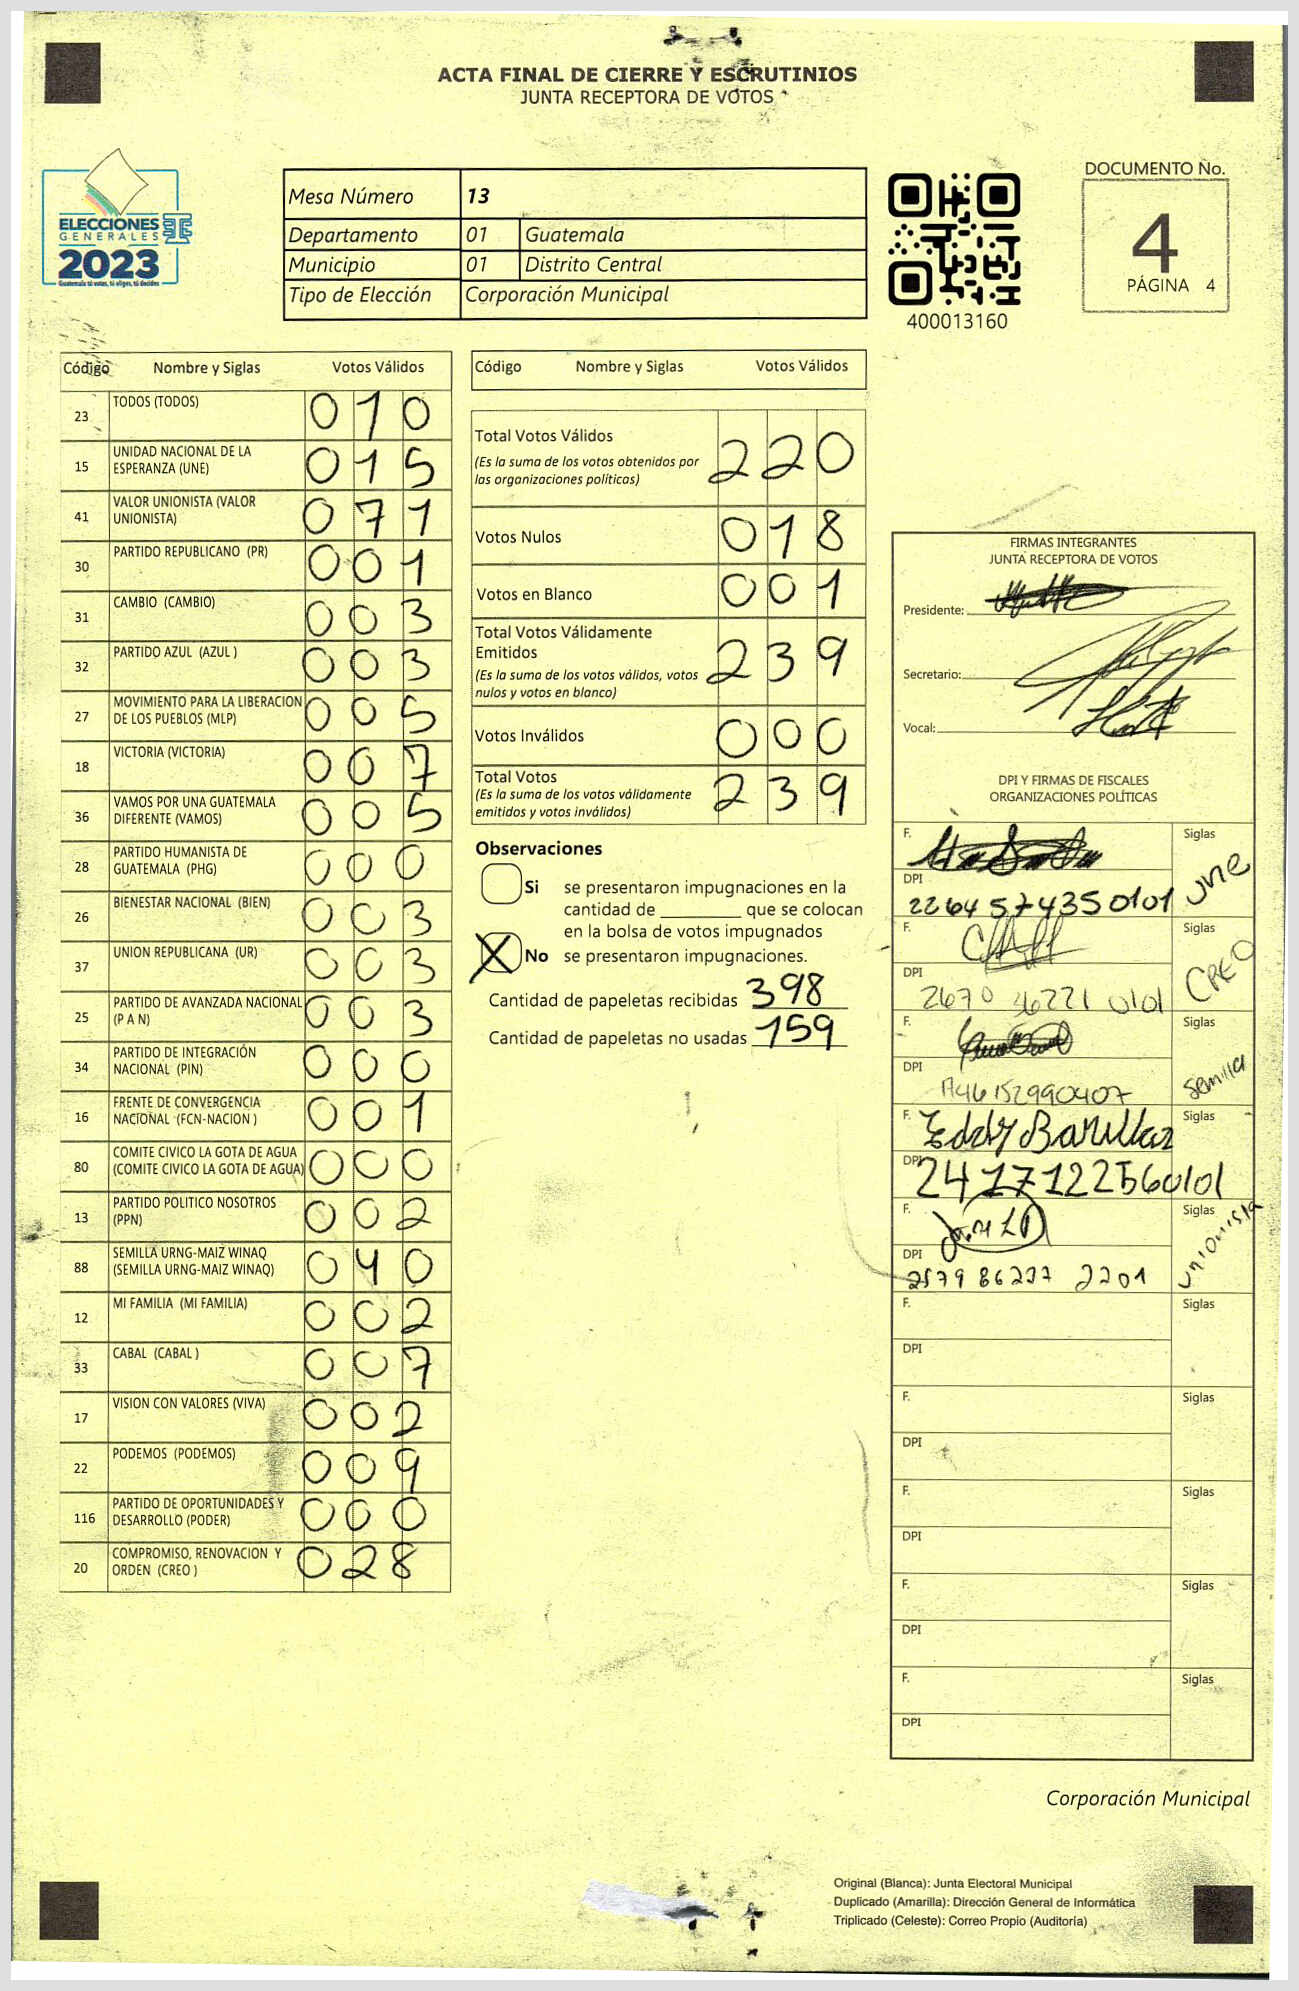 ACTA FINAL DE CIERRE Y ESCRUTINIOS
JUNTA RECEPTORA DE VOTOS
ELECCIONES
GENERALES
2023
Guatemala tú votas, tú eliges, tú decides
Mesa Número 13
Departamento 01 Guatemala
Municipio 01 Distrito Central
Tipo de Elección Corporación Municipal
400013160
DOCUMENTO No.
4
PÁGINA 4
Código Nombre y Siglas Votos Válidos
23 TODOS (TODOS) 010
15 UNIDAD NACIONAL DE LA ESPERANZA (UNE) 015
41 VALOR UNIONISTA (VALOR UNIONISTA) 071
30 PARTIDO REPUBLICANO (PR) 001
31 CAMBIO (CAMBIO) 003
32 PARTIDO AZUL (AZUL ) 003
27 MOVIMIENTO PARA LA LIBERACION DE LOS PUEBLOS (MLP) 005
18 VICTORIA (VICTORIA) 007
36 VAMOS POR UNA GUATEMALA DIFERENTE (VAMOS) 005
28 PARTIDO HUMANISTA DE GUATEMALA (PHG) 000
26 BIENESTAR NACIONAL (BIEN) 003
37 UNION REPUBLICANA (UR) 003
25 PARTIDO DE AVANZADA NACIONAL (P A N) 003
34 PARTIDO DE INTEGRACIÓN NACIONAL (PIN) 000
16 FRENTE DE CONVERGENCIA NACIONAL (FCN-NACION ) 001
80 COMITE CIVICO LA GOTA DE AGUA (COMITE CIVICO LA GOTA DE AGUA) 000
13 PARTIDO POLITICO NOSOTROS (PPN) 002
88 SEMILLA URNG-MAIZ WINAQ (SEMILLA URNG-MAIZ WINAQ) 040
12 MI FAMILIA (MI FAMILIA) 002
33 CABAL (CABAL ) 007
17 VISION CON VALORES (VIVA) 002
22 PODEMOS (PODEMOS) 009
116 PARTIDO DE OPORTUNIDADES Y DESARROLLO (PODER) 000
20 COMPROMISO, RENOVACION Y ORDEN (CREO ) 028
Código Nombre y Siglas Votos Válidos
Total Votos Válidos 220
(Es la suma de los votos obtenidos por
las organizaciones políticas)
Votos Nulos 018
Votos en Blanco 001
Total Votos Válidamente
Emitidos 239
(Es la suma de los votos válidos, votos
nulos y votos en blanco)
Votos Inválidos 000
Total Votos 239
(Es la suma de los votos válidamente
emitidos y votos inválidos)
Observaciones
Si se presentaron impugnaciones en la
cantidad de ________ que se colocan
en la bolsa de votos impugnados
X No se presentaron impugnaciones.
Cantidad de papeletas recibidas 398
Cantidad de papeletas no usadas 159
FIRMAS INTEGRANTES
JUNTA RECEPTORA DE VOTOS
Presidente:
Secretario:
Vocal:
DPI Y FIRMAS DE FISCALES
ORGANIZACIONES POLÍTICAS
F. Siglas UNE
DPI 2264 57435 0101
F. Siglas CREO
DPI 2670 36221 0101
F. Siglas semilla
DPI
F. Eddy Barillas Siglas
DPI 2417122560101
F. Siglas unionista
DPI 2579 86227 2201
F. Siglas
DPI
F. Siglas
DPI
F. Siglas
DPI
F. Siglas
DPI
F. Siglas
DPI
Corporación Municipal
Original (Blanca): Junta Electoral Municipal
Duplicado (Amarilla): Dirección General de Informática
Triplicado (Celeste): Correo Propio (Auditoría)